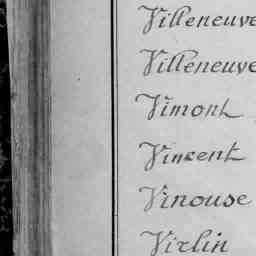 Villeneuve
Villeneuve
Vimont
Vincent
Vinouse
Virlin